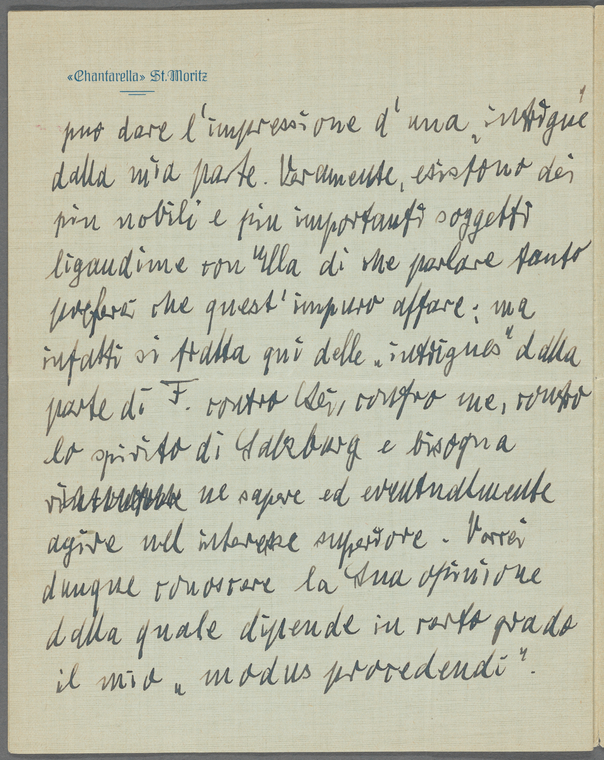 «Chantarella» St. Moritz
puo dare l'impressione d'una „intrigue"
dalla mia parte. Veramente, esistono dei
piu nobili e piu importanti soggetti
ligandime con Ella di che parlare tanto
preferei che quest'impuro affare; ma
infatti si tratta qui delle „intrigues" dalla
parte di F. contro Lei, contro me, contro
lo spirito di Salzburg e bisogna
ne sapere ed eventualmente
agire nel interesse superiore. Vorrei
dunque conoscere la Sua opinione
dalla quale dipende in certo grado
il mio „modus procedendi".